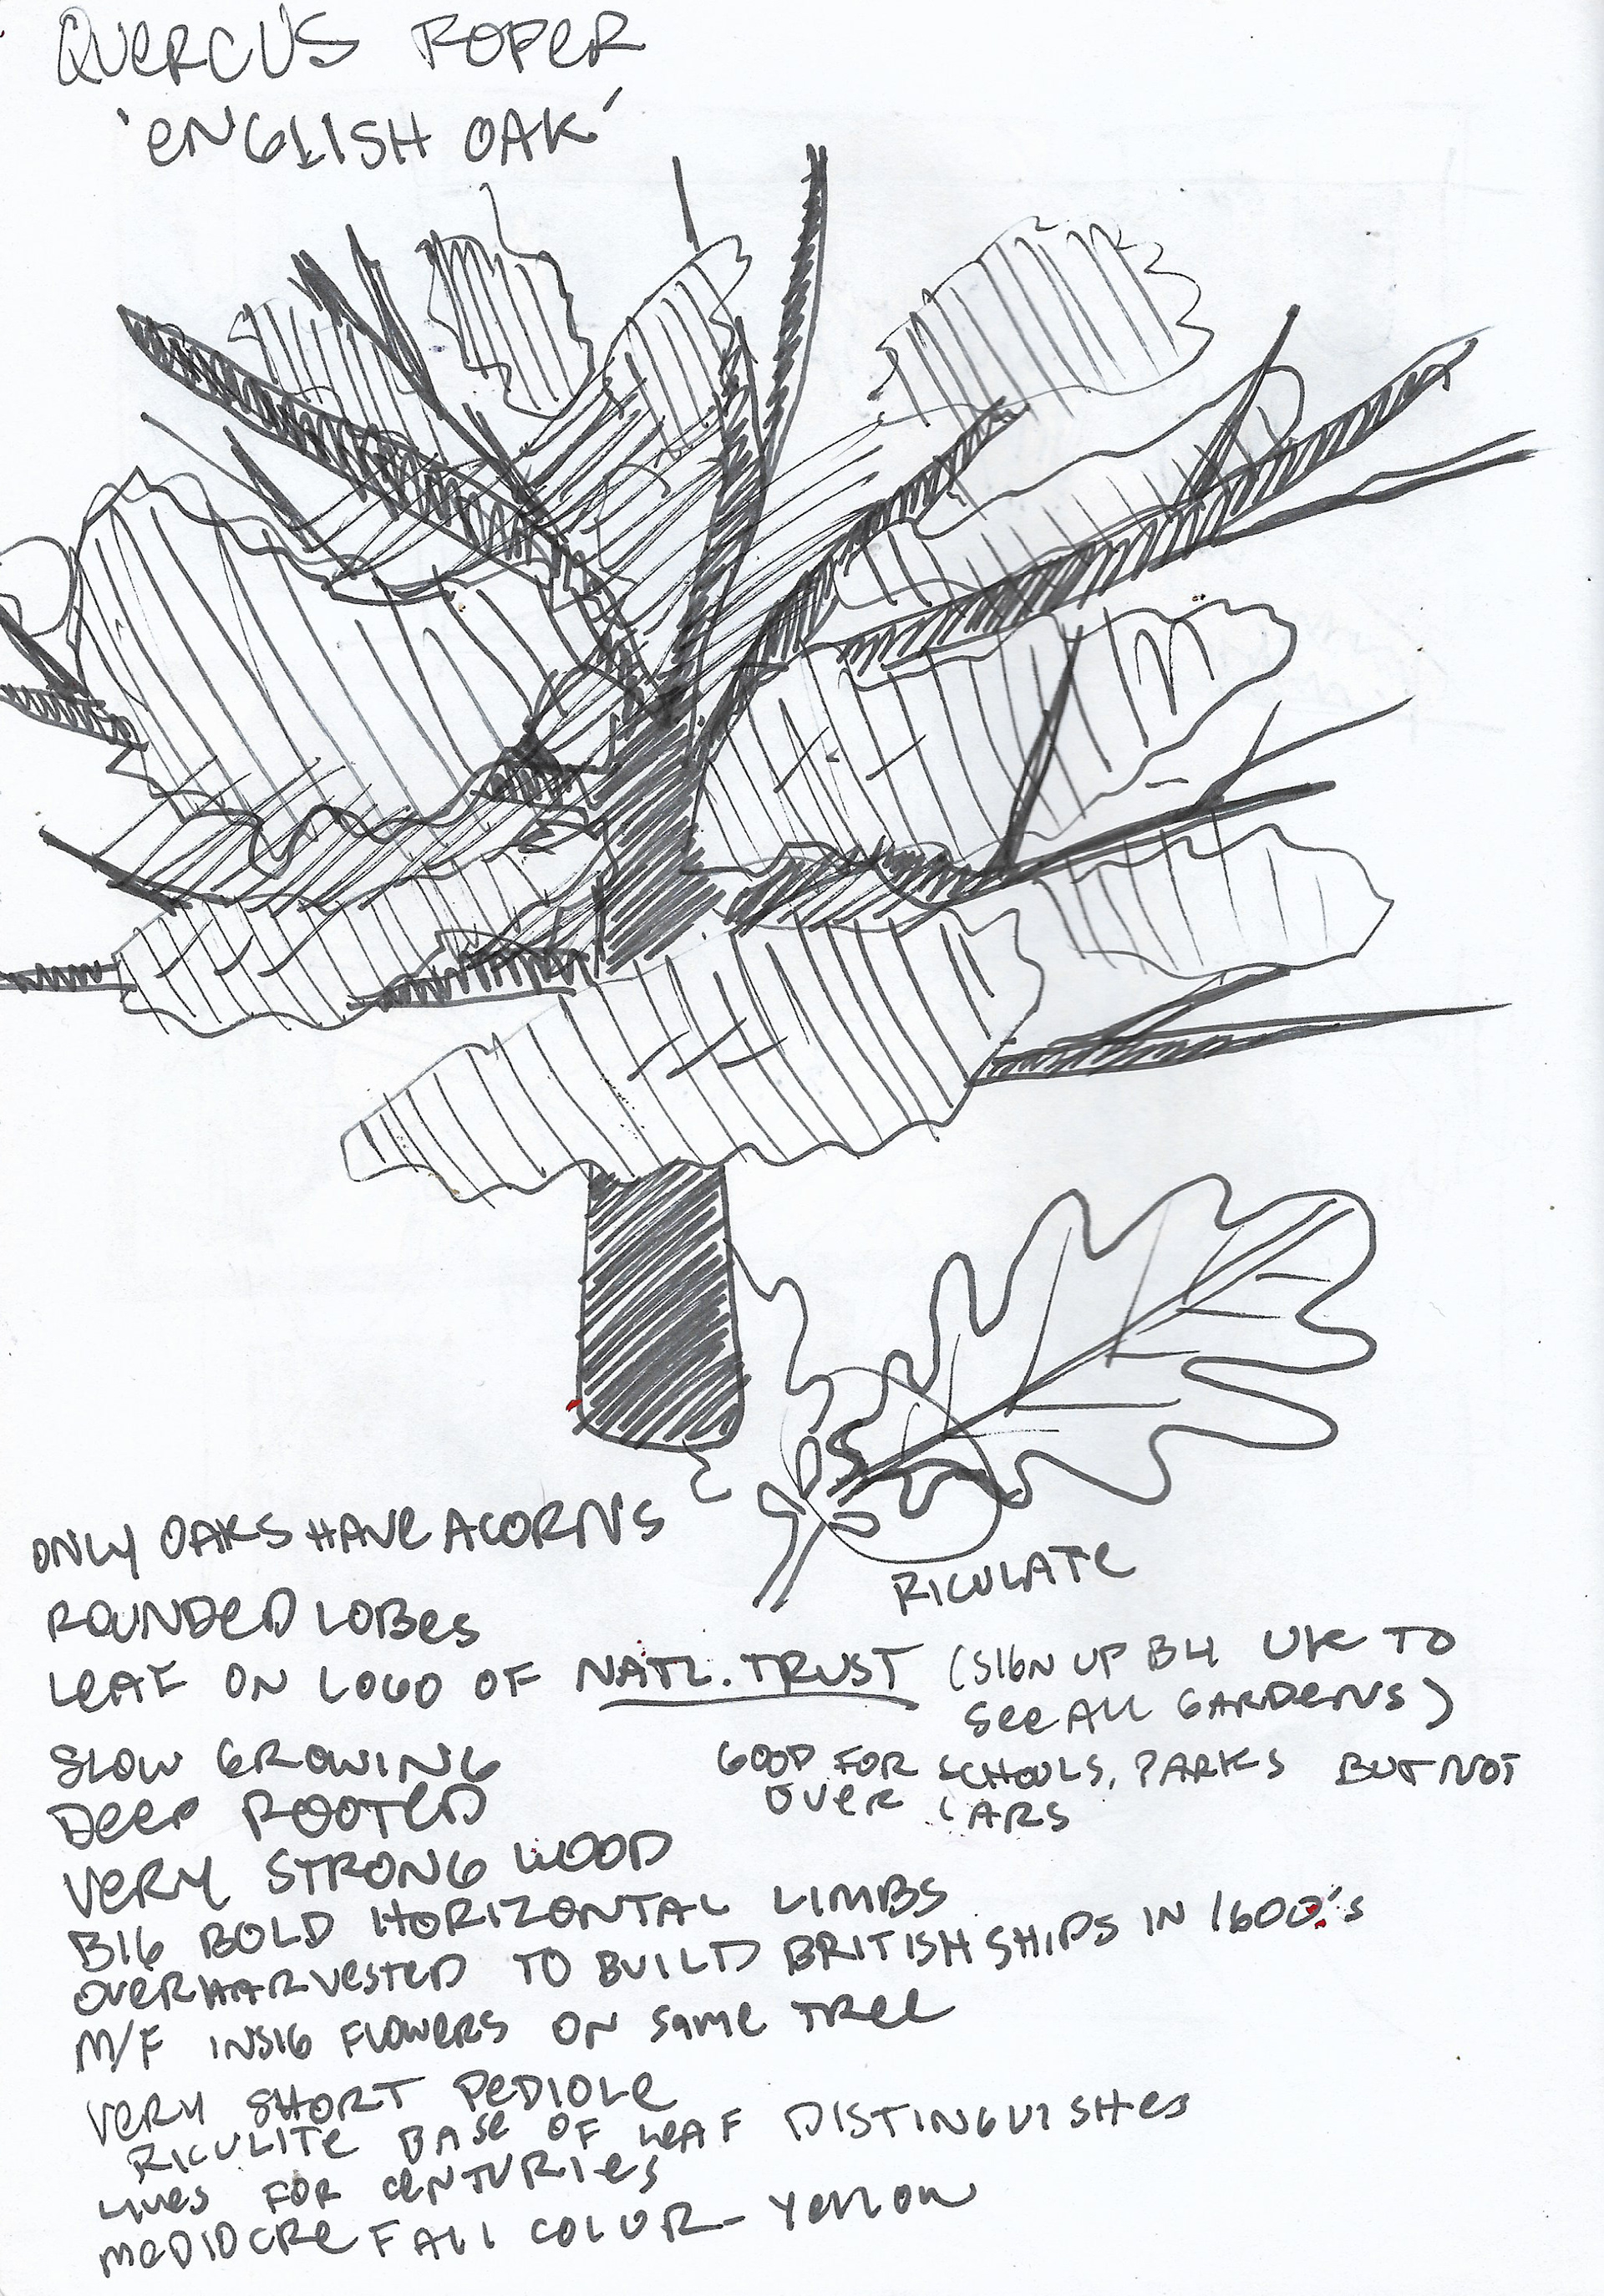 QUERCUS ROPER
'ENGLISH OAK'
ONLY OAKS HAVE ACORNS
RICULATE
ROUNDED LOBES
LEAF ON LOGO OF NATL. TRUST (SIGN UP B4 UK TO
SEE ALL GARDENS)
SLOW GROWING
GOOD FOR SCHOOLS, PARKS BUT NOT
OVER CARS
DEEP ROOTED
VERY STRONG WOOD
BIG BOLD HORIZONTAL LIMBS
OVERHARVESTED TO BUILD BRITISH SHIPS IN 1600's
M/F INSIG FLOWERS ON SAME TREE
VERY SHORT PEDIOLE
RICULITE BASE OF LEAF DISTINGUISHES
LIVES FOR CENTURIES
MEDIOCRE FALL COLOR - YELLOW